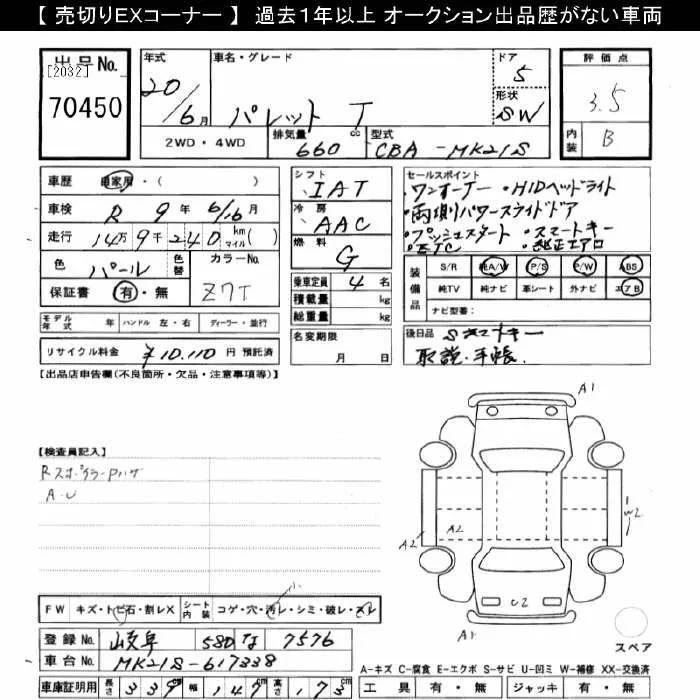 【 売切りEXコーナー 】 過去１年以上 オークション出品歴がない車両
出品 No.
[2032]
70450
年式
20/6月
車名・グレード
パレット T
ドア
5
形状
SW
2WD・4WD
排気量
660 cc
型式
CBA-MK21S
評価点
3.5
内装
B
車歴 自家用・( )
車検 R 9年 6/16月
走行 14万9千240 km マイル( )
色 パール 色替
カラーNo.
Z7T
保証書 有・無
シフト
IAT
冷房
AAC
燃料
G
乗車定員 4 名
積載量 kg
総重量 kg
名変期限
月 日
セールスポイント
・ワンオーナー ・HIDヘッドライト
・両側パワースライドドア
・プッシュスタート ・スマートキー
・ETC ・純正エアロ
装備品
S/R 純A/W P/S P/W ABS
純TV 純ナビ 革シート 外ナビ エアB
ナビ型番:
後日品 スマートキー
取説・手帳.
モデル年式 年 ハンドル 左・右 ディーラー・並行
リサイクル料金 ¥10,110 円 預託済
【出品店申告欄(不良箇所・欠品・注意事項等)】
【検査員記入】
Rスポイラーアハゲ
A・U
A1
A2
A2
W2
U2
A1
スペア
FW キズ・トビ石・割レX シート内装 コゲ・穴・汚レ・シミ・破レ・スレ
登録 No. 岐阜 580 な 7576
車台 No. MK21S-617338
車庫証明用 長さ 339cm 幅 147cm 高さ 173cm
A-キズ C-腐食 E-エクボ S-サビ U-凹ミ W-補修 XX-交換済
工具 有・無 ジャッキ 有・無